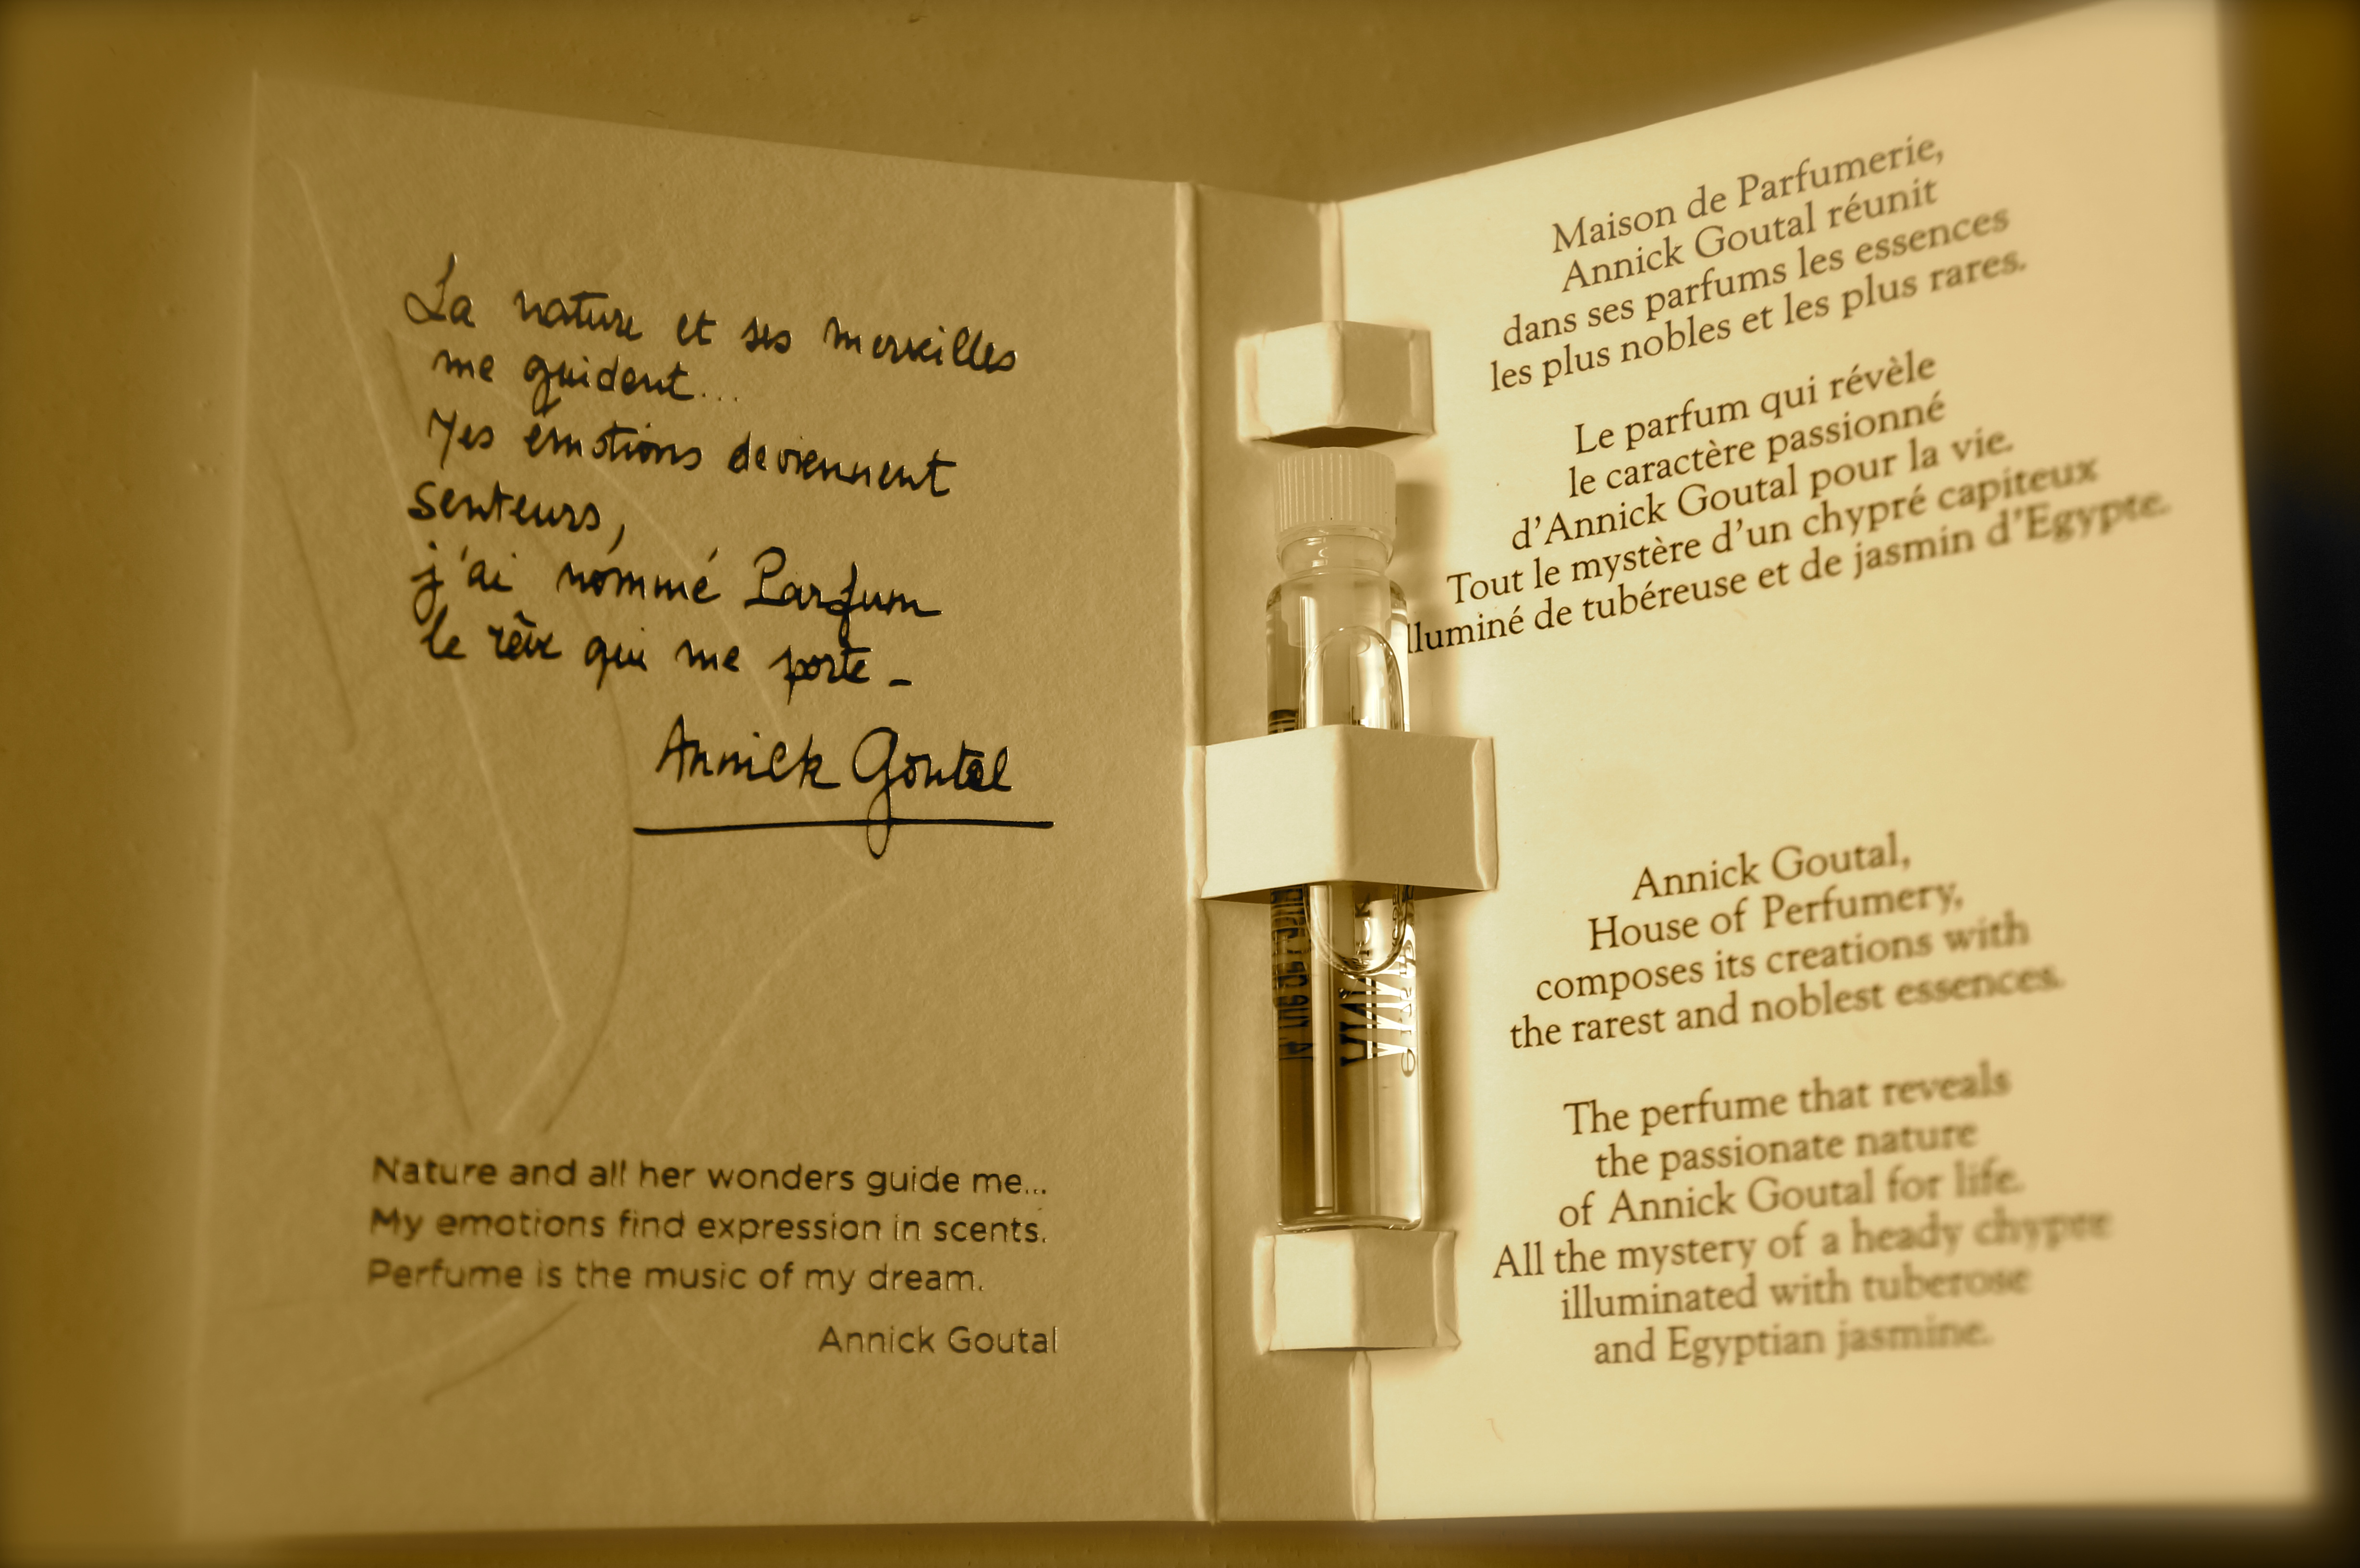 La nature et ses merveilles
me guident...
Mes émotions deviennent
senteurs,
j'ai nommé Parfum
le rêve qui me porte -
Annick Goutal
Nature and all her wonders guide me...
My emotions find expression in scents.
Perfume is the music of my dream.
Annick Goutal
Maison de Parfumerie,
Annick Goutal réunit
dans ses parfums les essences
les plus nobles et les plus rares.
Le parfum qui révèle
le caractère passionné
d'Annick Goutal pour la vie.
Tout le mystère d'un chypré capiteux
lluminé de tubéreuse et de jasmin d'Egypte.
Annick Goutal,
House of Perfumery,
composes its creations with
the rarest and noblest essences.
The perfume that reveals
the passionate nature
of Annick Goutal for life.
All the mystery of a heady chypre
illuminated with tuberose
and Egyptian jasmine.